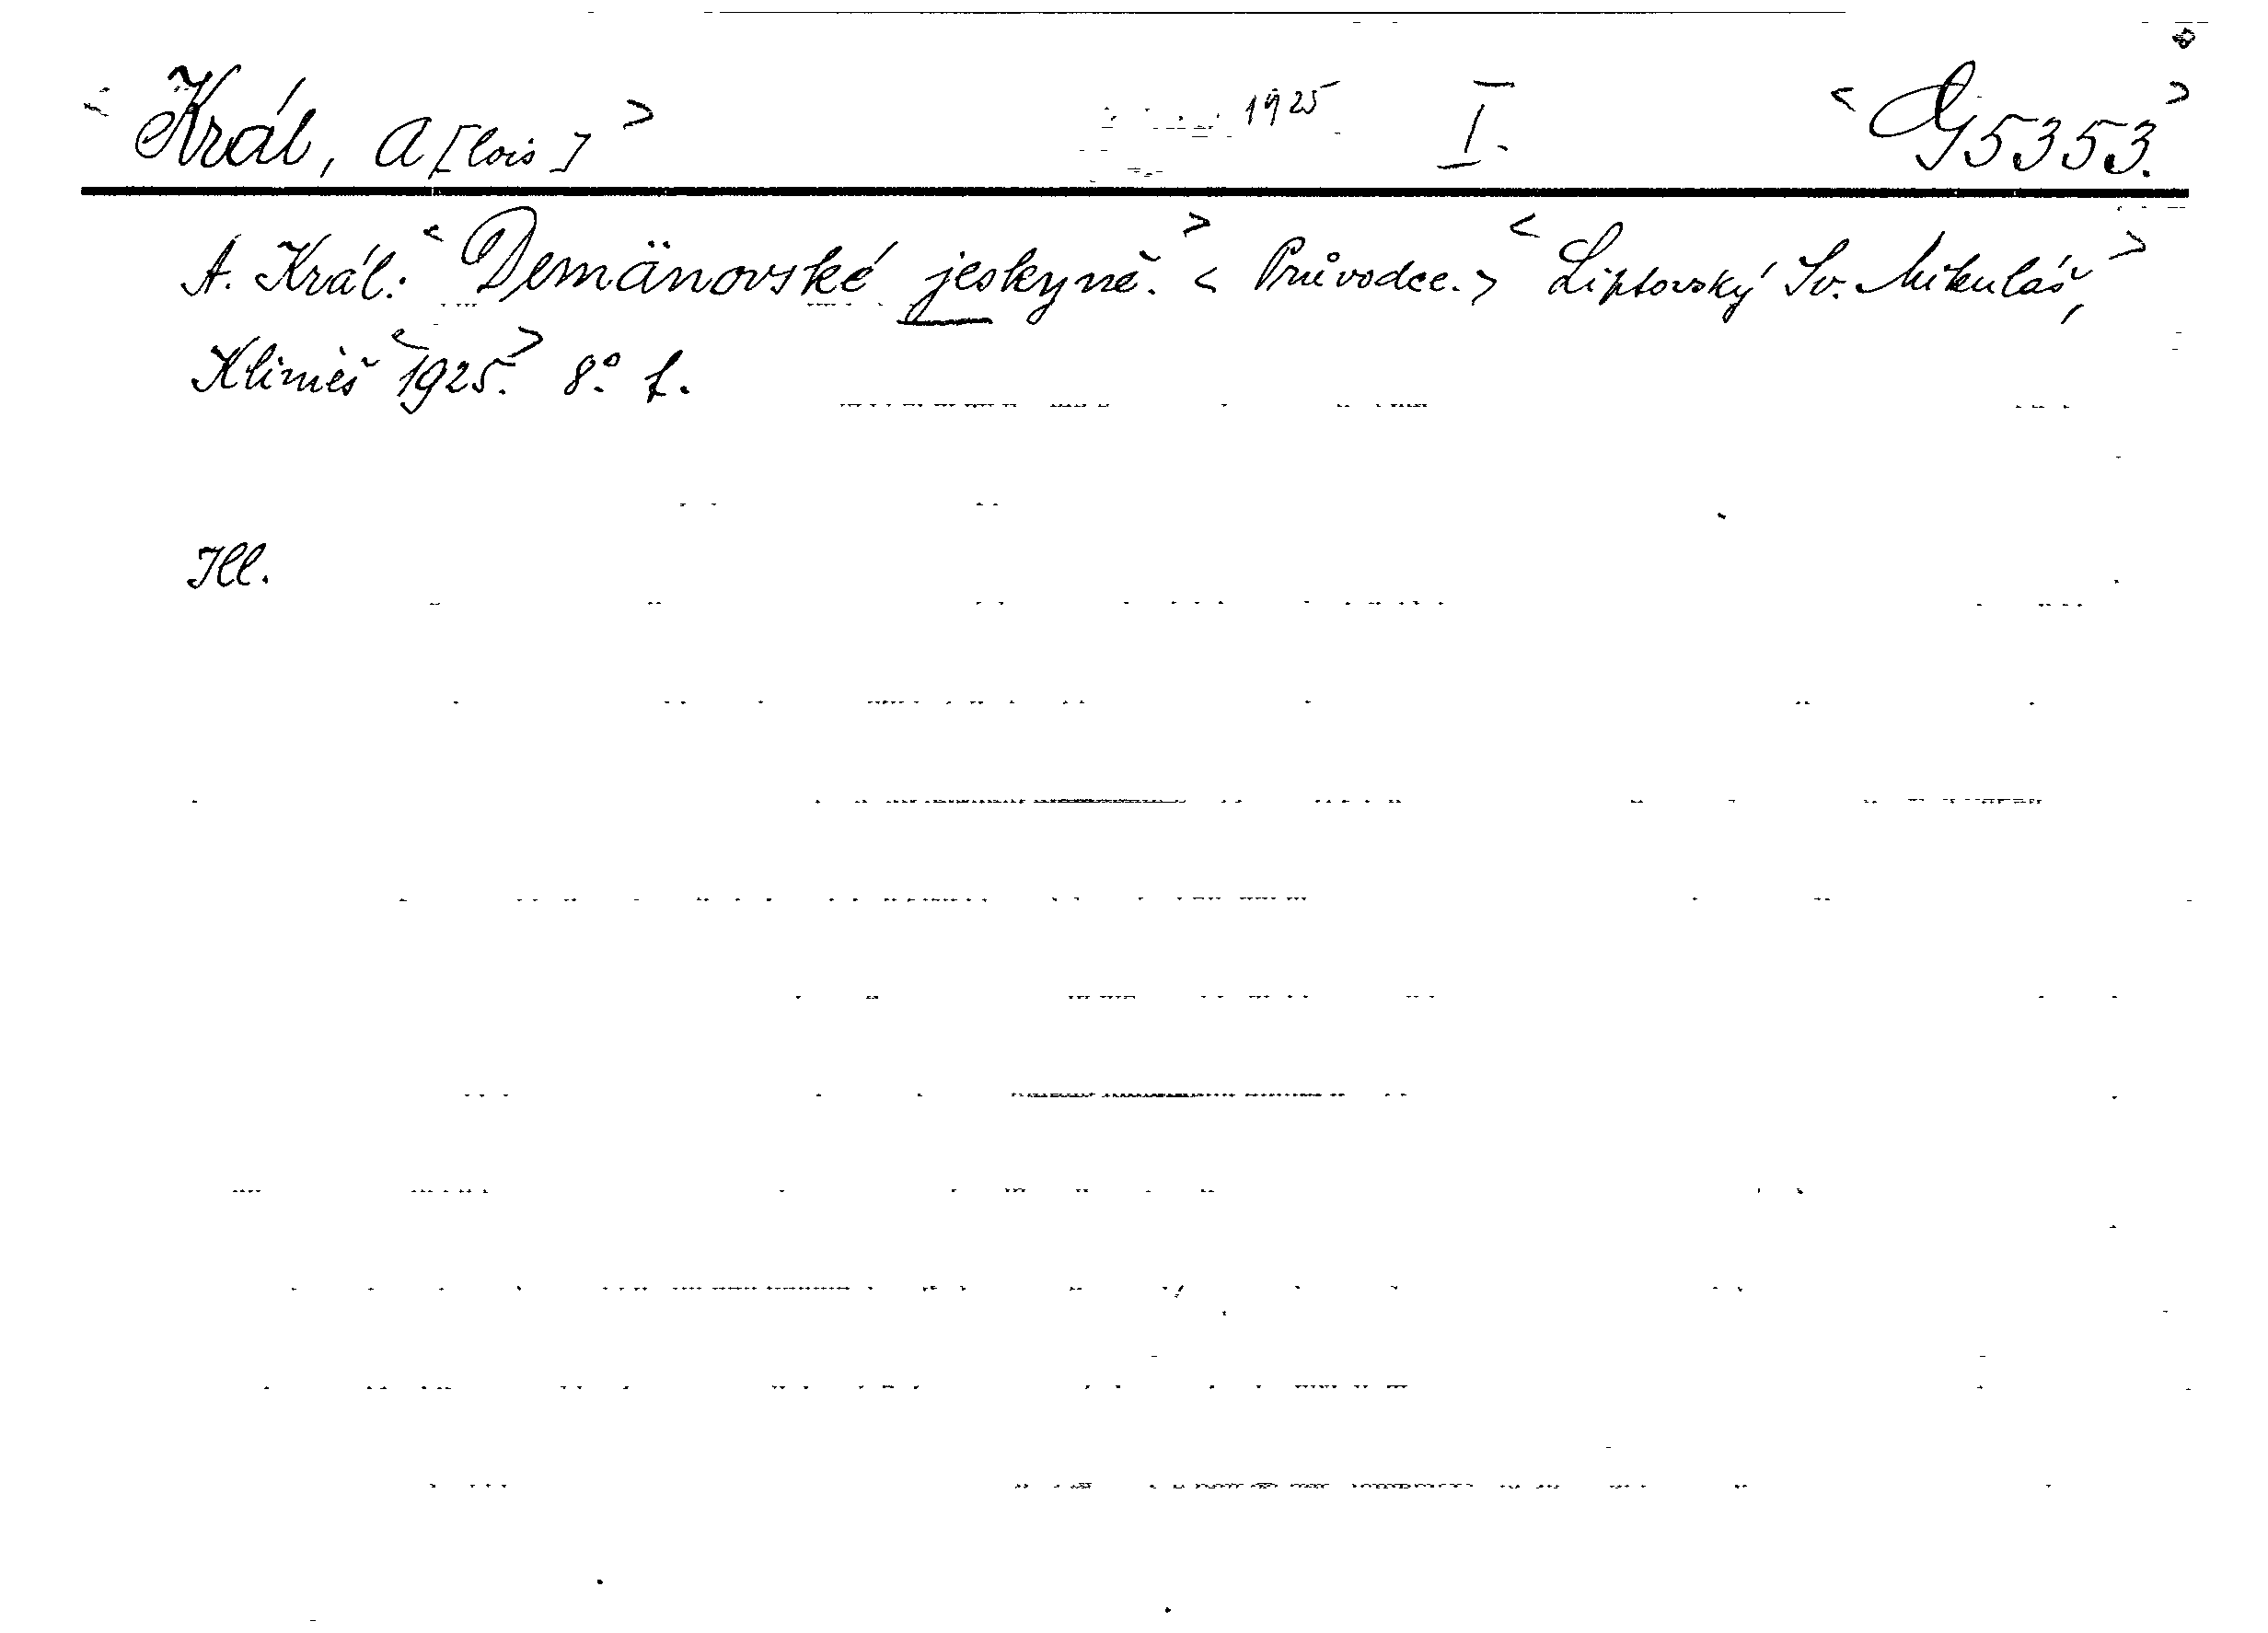 < Král, A[lois] > 1925 I. < G 5353. >
A. Král: < Demänovské jeskyně. > < Průvodce. > < Liptovský Sv. Mikuláš, >
Klimeš < 1925. > 8° f.
Ill.